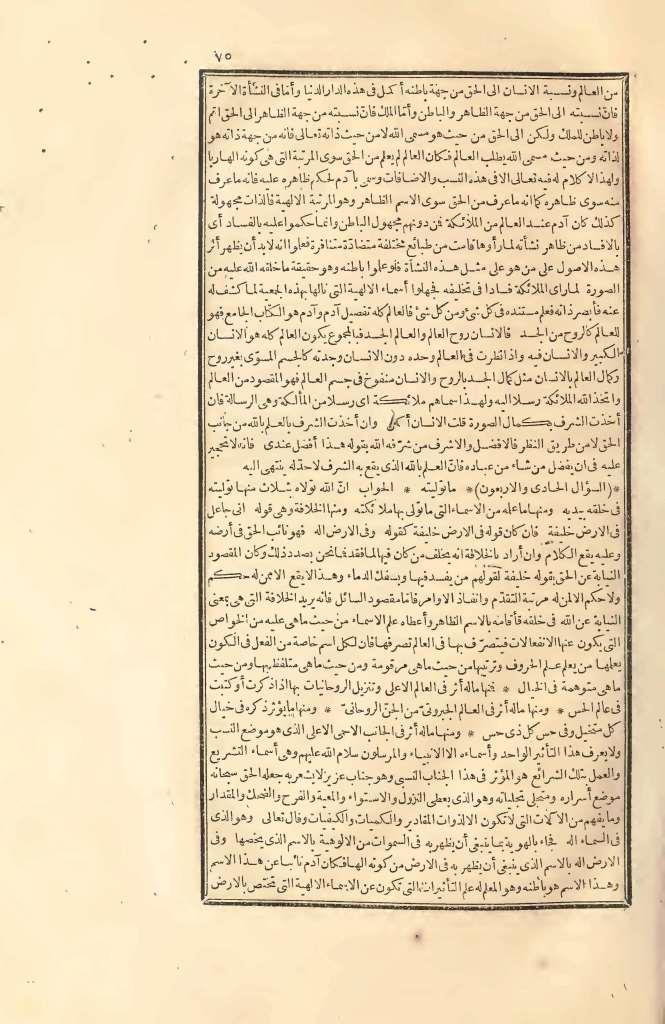 ٧٥
من العالم ونسبة الانسان الى الحق من جهة باطنه أكمل فى هذه الدار الدنيا وأما فى النشأة الآخرة
فان نسبته الى الحق من جهة الظاهر والباطن وأما الملك فان نسبته من جهة الظاهر الى الحق اتم
ولا باطن للملك ولكن الى الحق من حيث هو مسمى الله لا من حيث ذاته تعالى فانه من جهة ذاته هو
لذاته ومن حيث مسمى الله يطلب العالم فكان العالم لم يعلم من الحق سوى المرتبة التى هى كونه الها ربا
ولهذا لا كلام له فيه تعالى الا فى هذه النسب والاضافات وسمى بآدم لحكم ظاهره عليه فانه ما عرف
منه سوى ظاهره كما انه ما عرف من الحق سوى الاسم الظاهر وهو المرتبة الالهية فالذات مجهولة
كذلك كان آدم عند العالم من الملائكة فمن دونهم مجهول الباطن وانما حكموا عليه بالفساد أى
بالافساد من ظاهر نشأته لما رأوها قامت من طبائع مختلفة متضادة متنافرة فعلموا انه لا بد أن يظهر أثر
هذه الاصول على من هو على مثل هذه النشأة فلو علموا باطنه وهو حقيقة ما خلقه الله عليه من
الصورة لما راى الملائكة فسادا فى تخليفه فجهلوا أسماء الالهية التى نالها بهذه الجمعية لما كشف له
عنه فأبصر ذاته فعلم مستنده فى كل شئ ومن كل شئ فالعالم كله تفصيل آدم وآدم هو الكتاب الجامع فهو
للعالم كالروح من الجسد فالانسان روح العالم والعالم الجسد فبالمجموع يكون العالم كله هو الانسان
الكبير والانسان فيه واذا نظرت فى العالم وحده دون الانسان وجدته كالجسم المسوّى بغير روح
وكمال العالم بالانسان مثل كمال الجسد بالروح والانسان منفوخ فى جسم العالم فهو المقصود من العالم
واتخذ الله الملائكة رسلا اليه ولهذا سماهم ملائكة اى رسلا من المألكة وهى الرسالة فان
أخذت الشرف بكمال الصورة قلت الانسان أكمل وان أخذت الشرف بالعلم بالله من جانب
الحق لا من طريق النظر فالافضل والاشرف من شرّفه الله بقوله هذا أفضل عندى فانه لا تحجير
عليه فى ان يفضل من شاء من عباده فان العلم بالله الذى يقع به الشرف لا حد له ينتهى اليه
* (السؤال الحادى والاربعون) * ما توليته * الجواب انّ الله تولاه بثلاث منها توليته
فى خلقه بيديه ومنها ما علمه من الاسماء التى ما تولى بها ملائكته ومنها الخلافة وهى قوله انى جاعل
فى الارض خليفة فان كان قوله فى الارض خليفة كقوله وفى الارض اله فهو نائب الحق فى أرضه
وعليه يقع الكلام وان أراد بالخلافة انه يخلف من كان فيها لما فقد فما نحن بصدد ذلك وكان المقصود
النيابة عن الحق بقوله خليفة لقولهم من يفسد فيها ويسفك الدماء وهذا لا يقع الا ممن له حكم
ولا حكم الا لمن له مرتبة التقدّم وانفاذ الاوامر فاما مقصود السائل فانه يريد الخلافة التى هى بمعنى
النيابة عن الله فى خلقه فأقامه بالاسم الظاهر وأعطاه علم الاسماء من حيث ما هى عليه من الخواص
التى يكون عنها الانفعالات فيتصرّف بها فى العالم تصرفها فان لكل اسم خاصة من الفعل فى الكون
يعلمها من يعلم علم الحروف وترتيبها من حيث ما هى مرقومة ومن حيث ما هى متلفظ بها ومن حيث
ما هى متوهمة فى الخيال * فمنها ما له أثر فى العالم الاعلى وتنزيل الروحانيات بها اذا ذكرت أو كتبت
فى عالم الحس * ومنها ما له أثر فى العالم الجبروتى من الجن الروحانىّ * ومنها ما يؤثر ذكره فى خيال
كل متخيل وفى حس كل ذى حس * ومنها ما له أثر فى الجانب الاحمى الاعلى الذى هو موضع النسب
ولا يعرف هذا التأثير الواحد وأسماءه الا الانبياء والمرسلون سلام الله عليهم وهى أسماء التشريع
والعمل بتلك الشرائع هو المؤثر فى هذا الجناب النسبى وهو جناب عزيز لا يشعر به جعله الحق سبحانه
موضع أسراره ومنجلى تجلياته وهو الذى يعطى النزول والاستواء والمعية والفرح والضحك والمقدار
وما يفهم من الآلات التى لا تكون الا لذوات المقادير والكميات والكيفيات وقال تعالى وهو الذى
فى السماء اله فجاء بالهوية بما ينبغى أن يظهر به فى السموات من الالوهية بالاسم الذى يخصها وفى
الارض اله بالاسم الذى ينبغى أن يظهر به فى الارض من كونه الها فكان آدم نائبا عن هذا الاسم
وهذا الاسم هو باطنه وهو المعلم له علم التأثيرات التى تكون عن الاسماء الالهية التى تختص بالارض